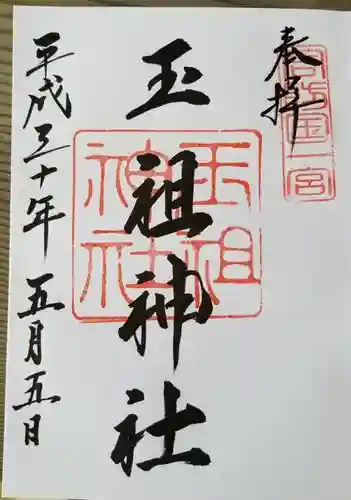 奉拝
周防国一宮
玉祖神社
玉祖神社
平成三十年 五月五日